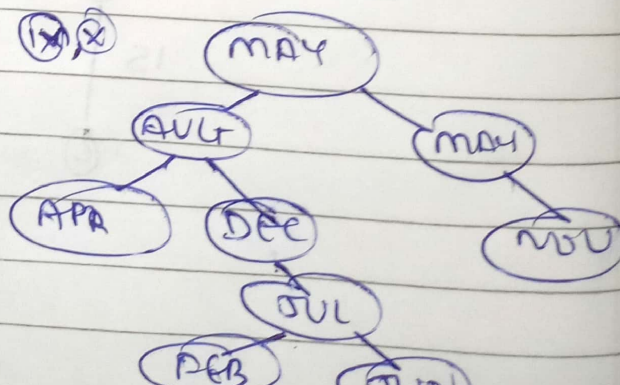 ix, x
MAY
AUG
MAY
APR
DEC
NOV
JUL
FEB